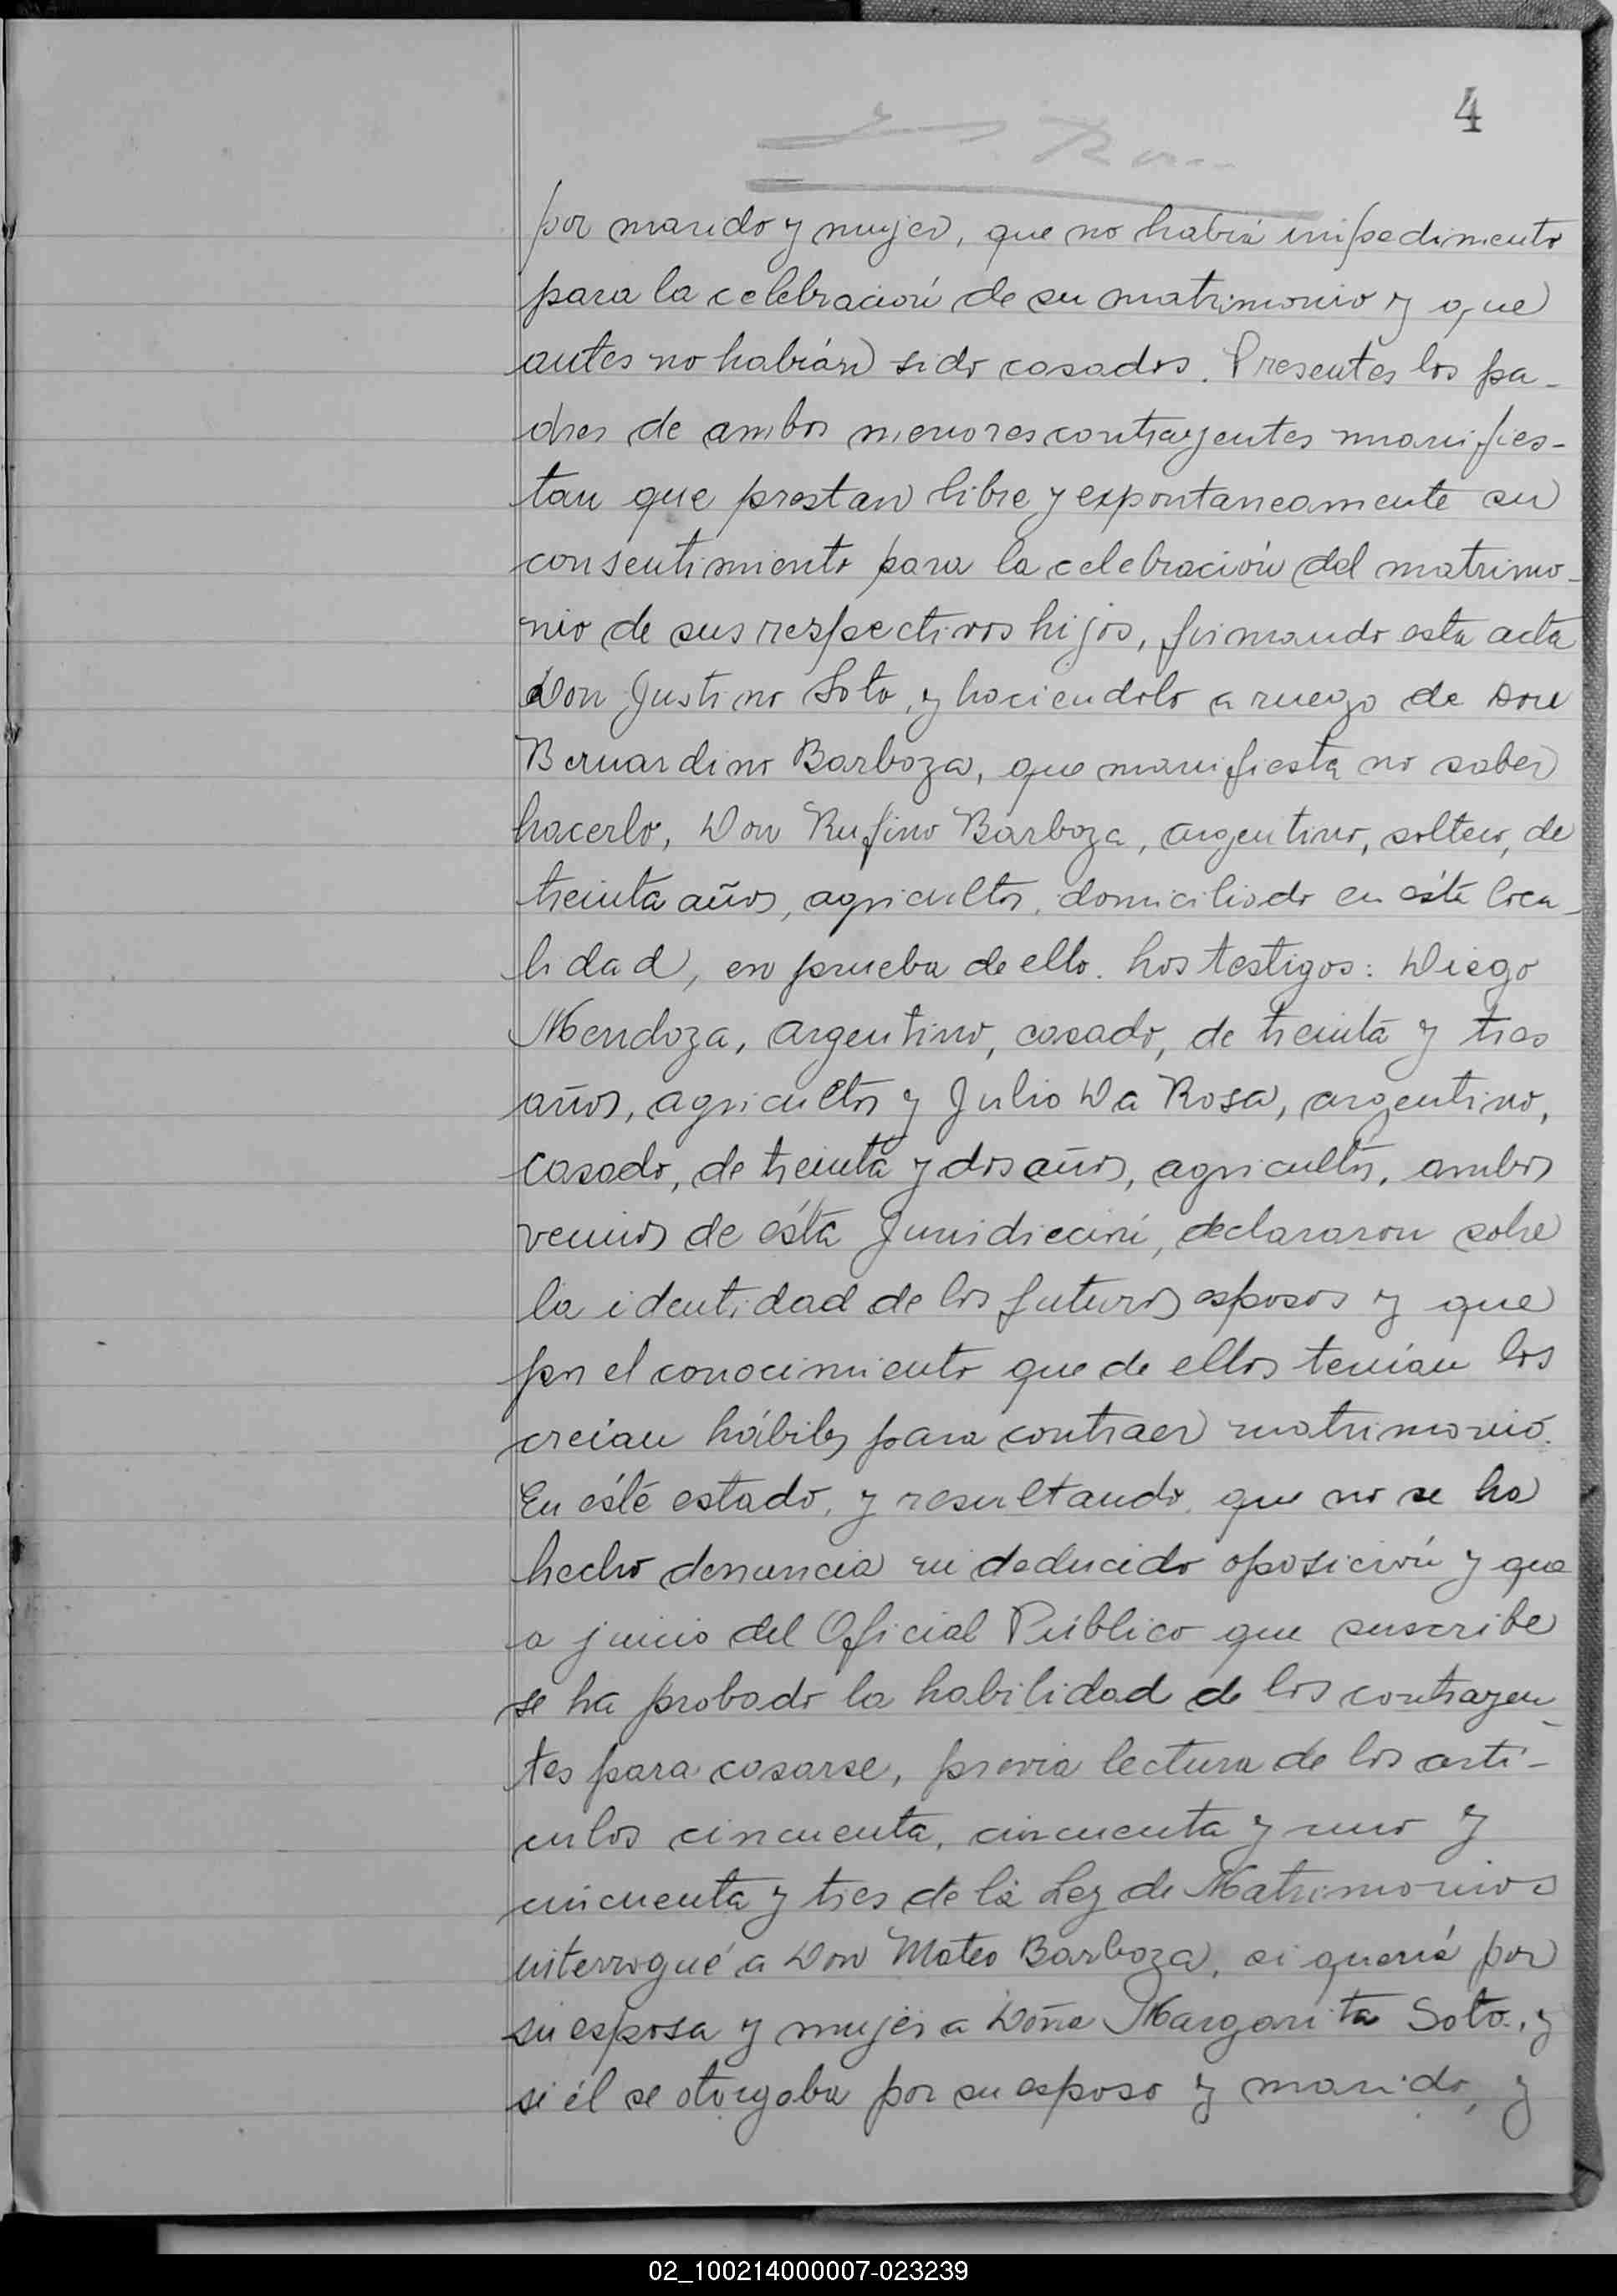 4
por marido y mujer, que no había impedimento
para la celebración de su matrimonio y que
antes no habían sido casados. Presentes los pa-
dres de ambos menores contrayentes manifies-
tan que prestan libre y expontaneamente su
consentimiento para la celebración del matrimo-
nio de sus respectivos hijos, firmando esta acta
Don Justino Soto, y haciendolo a ruego de Don
Bernardino Barboza, que manifiesta no saber
hacerlo, Don Rufino Barboza, argentino, soltero, de
treinta años, agricultor, domiciliado en ésta loca-
lidad, en prueba de ello. Los testigos: Diego
Mendoza, argentino, casado, de treinta y tres
años, agricultor y Julio Da Rosa, argentino,
casado, de treinta y dos años, agricultor, ambos
vecinos de ésta Jurisdicción, declararon sobre
la identidad de los futuros esposos y que
por el conocimiento que de ellos tenían los
creían hábiles para contraer matrimonio.
En éste estado, y resultando, que no se ha
hecho denuncia ni deducido oposición y que
a juicio del Oficial Público que suscribe
se ha probado la habilidad de los contrayen-
tes para casarse, previa lectura de los artí-
culos cincuenta, cincuenta y uno y
cincuenta y tres de la Ley de Matrimonios
interrogué a Don Mateo Barboza, si quería por
su esposa y mujer a Doña Margarita Soto, y
si él se otorgaba por su esposo y marido, y
02_100214000007-023239